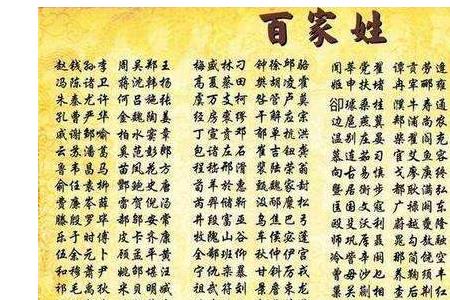 百家姓
赵钱孙李 周吴郑王 梅盛林刁 钟徐邱骆 闻莘党翟 谭贡劳逄
冯陈褚卫 蒋沈韩杨 高夏蔡田 樊胡凌霍 姬申扶堵 冉宰郦雍
朱秦尤许 何吕施张 虞万支柯 昝管卢莫 郤璩桑桂 濮牛寿通
孔曹严华 金魏陶姜 经房裘缪 干解应宗 边扈燕冀 郏浦尚农
戚谢邹喻 柏水窦章 丁宣贲邓 郁单杭洪 温别庄晏 柴瞿阎充
云苏潘葛 奚范彭郎 包诸左石 崔吉钮龚 慕连茹习 宦艾鱼容
鲁韦昌马 苗凤花方 程嵇邢滑 裴陆荣翁 向古易慎 戈廖庾终
俞任袁柳 酆鲍史唐 荀羊於惠 甄曲家封 暨居衡步 都耿满弘
费廉岑薛 雷贺倪汤 芮羿储靳 汲邴糜松 匡国文寇 广禄阙东
滕殷罗毕 郝邬安常 井段富巫 乌焦巴弓 欧殳沃利 蔚越夔隆
乐于时傅 皮卞齐康 牧隗山谷 车侯宓蓬 师巩厍聂 晁勾敖融
伍余元卜 顾孟平黄 全郗班仰 秋仲伊宫 冷訾辛阚 那简饶空
和穆萧尹 姚邵湛汪 宁仇栾暴 甘钭厉戎 曾毋沙乜 养鞠须丰